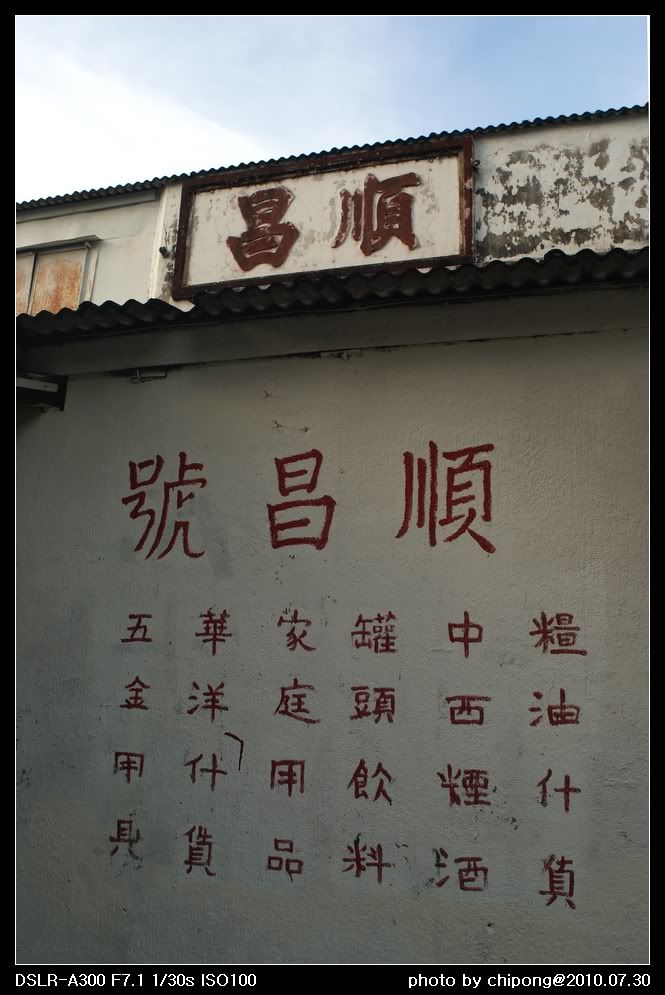 順昌
順昌號
糧油什貨
中西煙酒
罐頭飲料
家庭用品
華洋什貨
五金用具
DSLR-A300 F7.1 1/30s ISO100
photo by chipong@2010.07.30